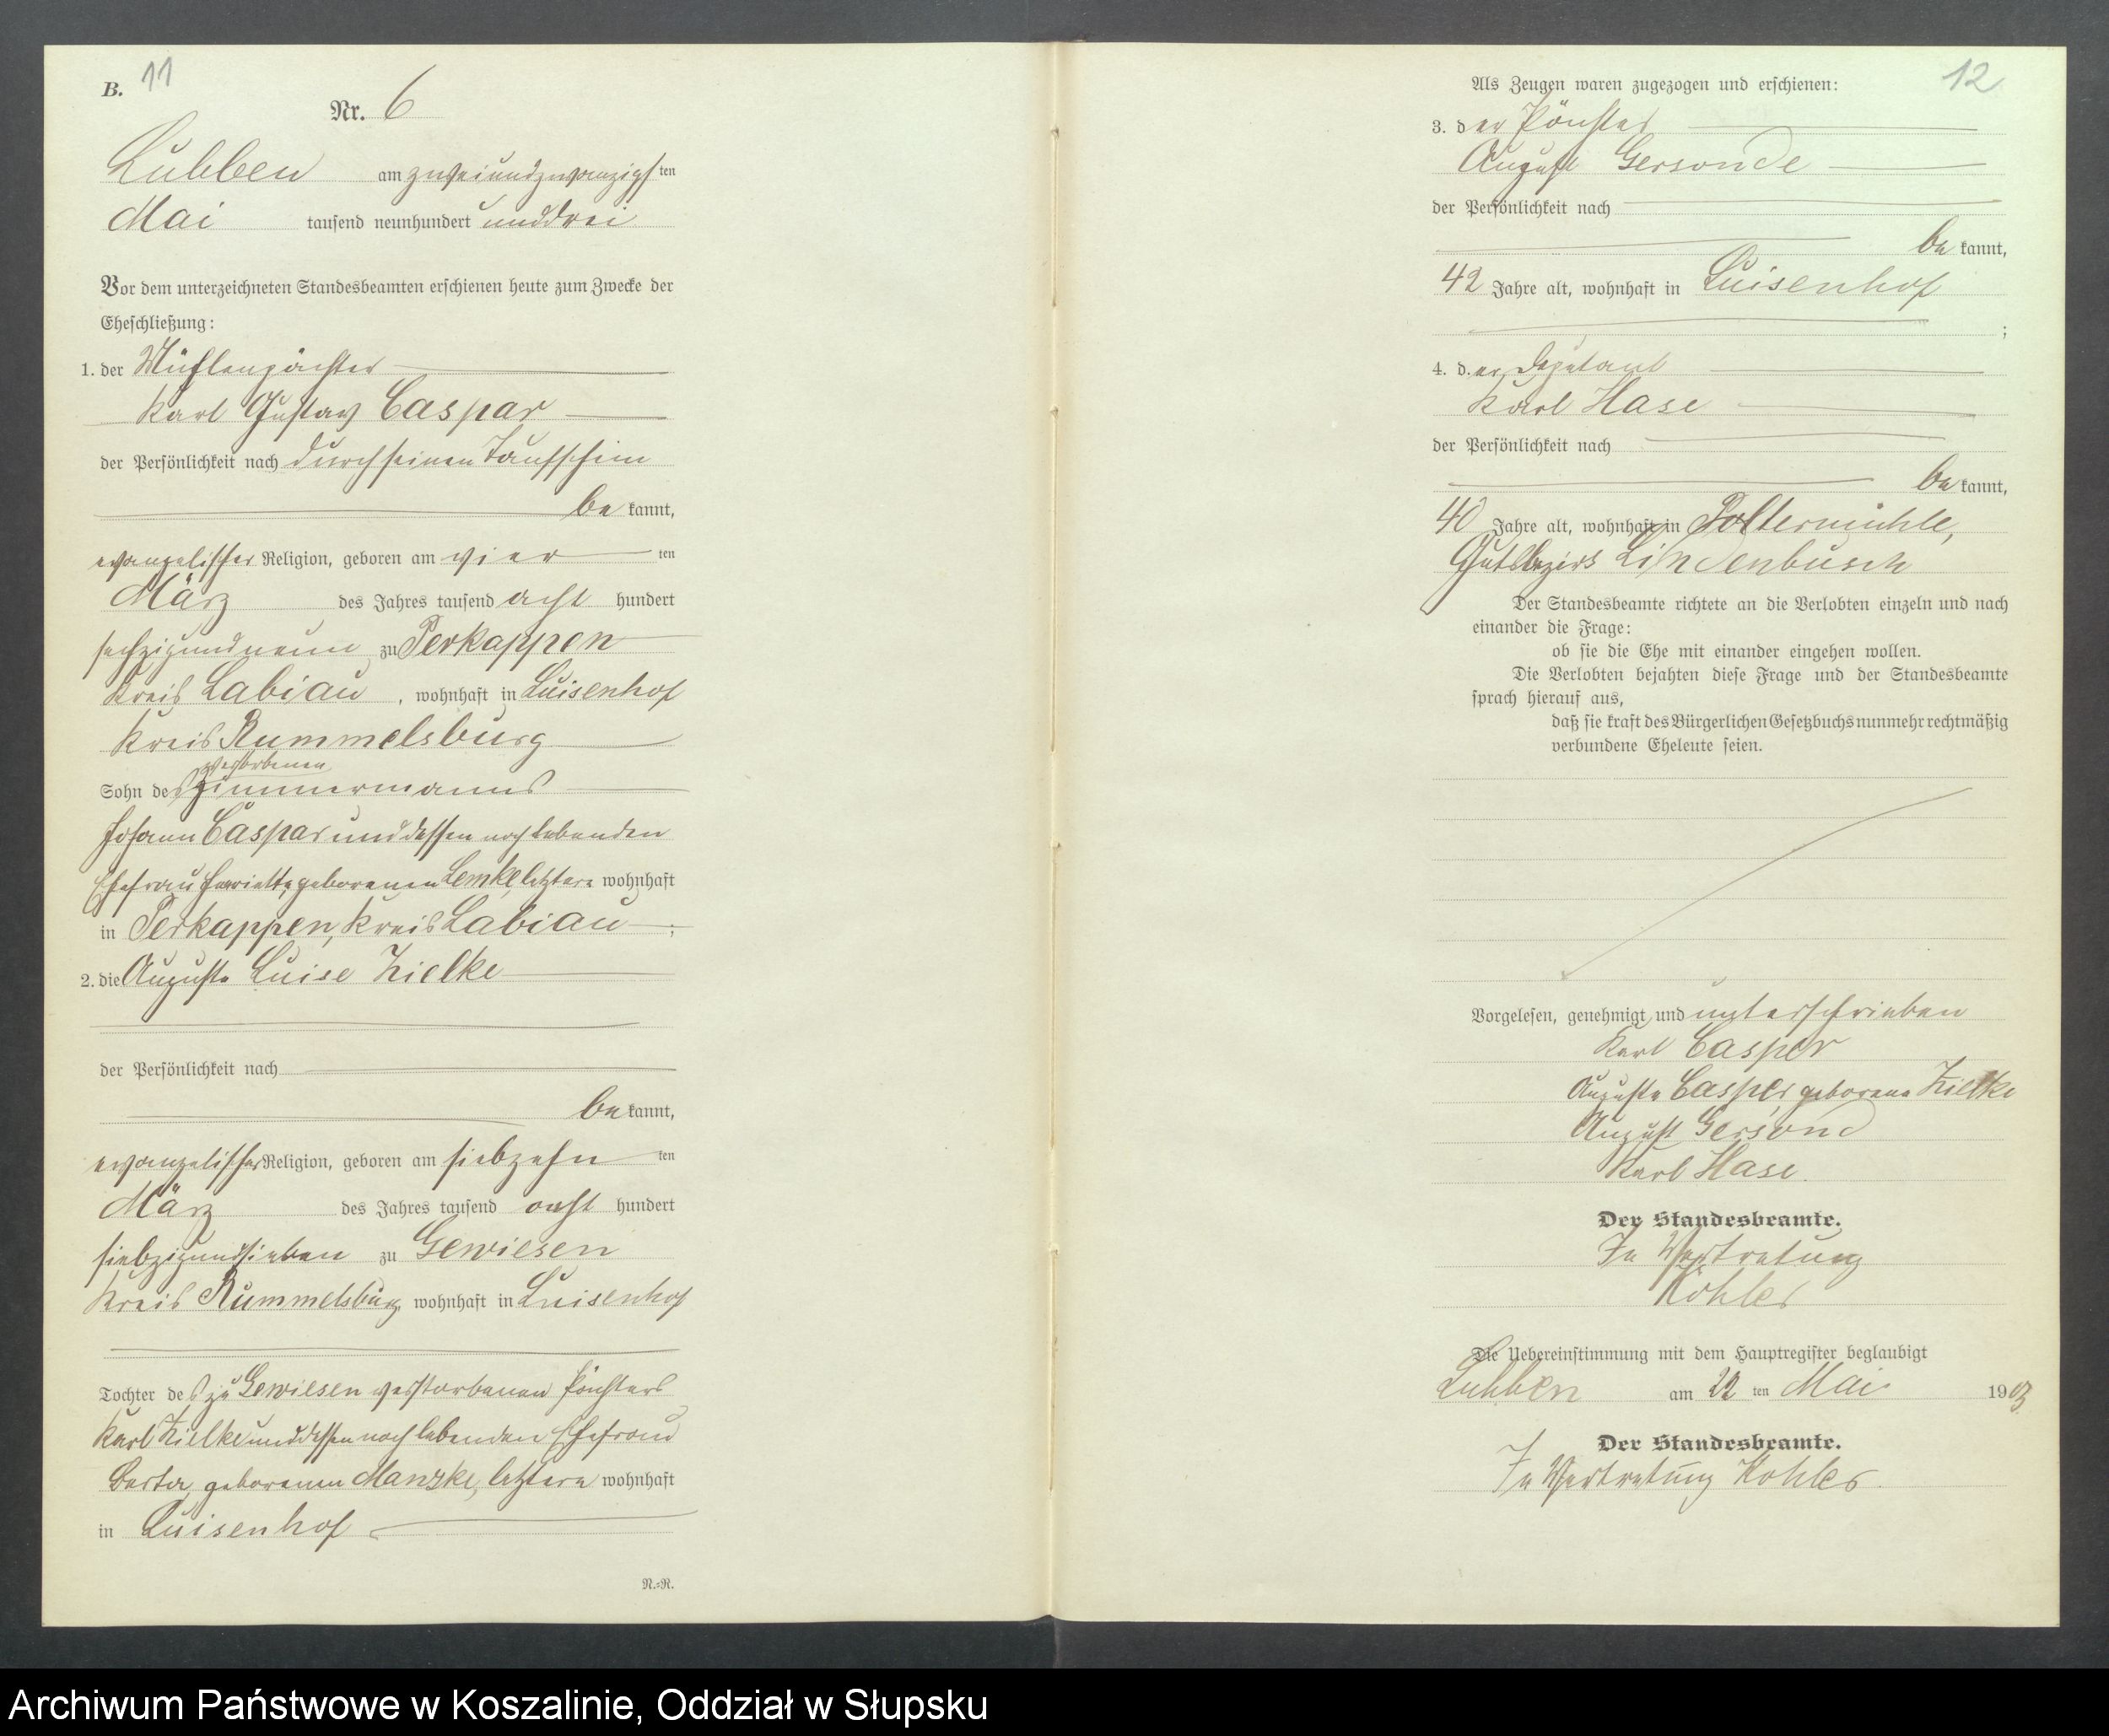 B. 11
Nr. 6
Lubben am zweiundzwanzigsten
Mai tausend neunhundert und drei
Vor dem unterzeichneten Standesbeamten erschienen heute zum Zwecke der
Eheschließung:
1. der Mühlenpächter
Karl Gustav Caspar
der Persönlichkeit nach durch seinen Taufschein
bekannt,
evangelischer Religion, geboren am vierten
März des Jahres tausend acht hundert
sechzig und neun zu Perkappen
Kreis Labiau, wohnhaft in Luisenhof
Kreis Rummelsburg
verstorbenen
Sohn des Zimmermanns
Johann Caspar und dessen noch lebenden
Ehefrau Henriette, geborenen Lemke, letztere wohnhaft
in Perkappen, Kreis Labiau;
2. die Auguste Luise Zielke
der Persönlichkeit nach
bekannt,
evangelischer Religion, geboren am siebzehnten
März des Jahres tausend acht hundert
siebzig und sieben zu Gewiesen
Kreis Rummelsburg, wohnhaft in Luisenhof
Tochter des zu Gewiesen verstorbenen Pächters
Karl Zielke und dessen noch lebenden Ehefrau
Berta, geborenen Manzke, letztere wohnhaft
in Luisenhof
N.=R.
12
Als Zeugen waren zugezogen und erschienen:
3. der Pächter
August Gersonde
der Persönlichkeit nach
bekannt,
42 Jahre alt, wohnhaft in Luisenhof
;
4. der Deputant
Karl Hase
der Persönlichkeit nach
bekannt,
40 Jahre alt, wohnhaft in Poltermühle,
Gutsbezirk Lindenbusch
Der Standesbeamte richtete an die Verlobten einzeln und nach
einander die Frage:
ob sie die Ehe mit einander eingehen wollen.
Die Verlobten bejahten diese Frage und der Standesbeamte
sprach hierauf aus,
daß sie kraft des Bürgerlichen Gesetzbuchs nunmehr rechtmäßig
verbundene Eheleute seien.
Vorgelesen, genehmigt und unterschrieben
Karl Casper
Auguste Casper geborene Zielke
August Gersond
Karl Hase.
Der Standesbeamte.
In Vertretung
Köhler
Die Uebereinstimmung mit dem Hauptregister beglaubigt
Lubben am 22 ten Mai 1903
Der Standesbeamte.
In Vertretung Köhler
Archiwum Państwowe w Koszalinie, Oddział w Słupsku